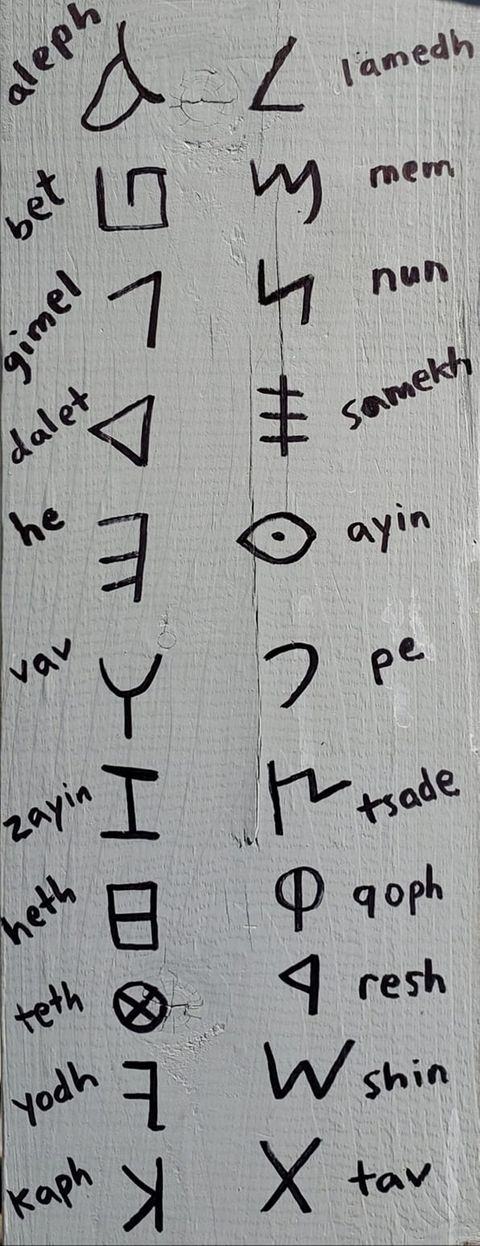 aleph 𐤀
bet 𐤁
gimel 𐤂
dalet 𐤃
he 𐤄
vav 𐤅
zayin 𐤆
heth 𐤇
teth 𐤈
yodh 𐤉
kaph 𐤊
𐤋 lamedh
𐤌 mem
𐤍 nun
𐤎 samekh
𐤏 ayin
𐤐 pe
𐤑 tsade
𐤒 qoph
𐤓 resh
𐤔 shin
𐤕 tav